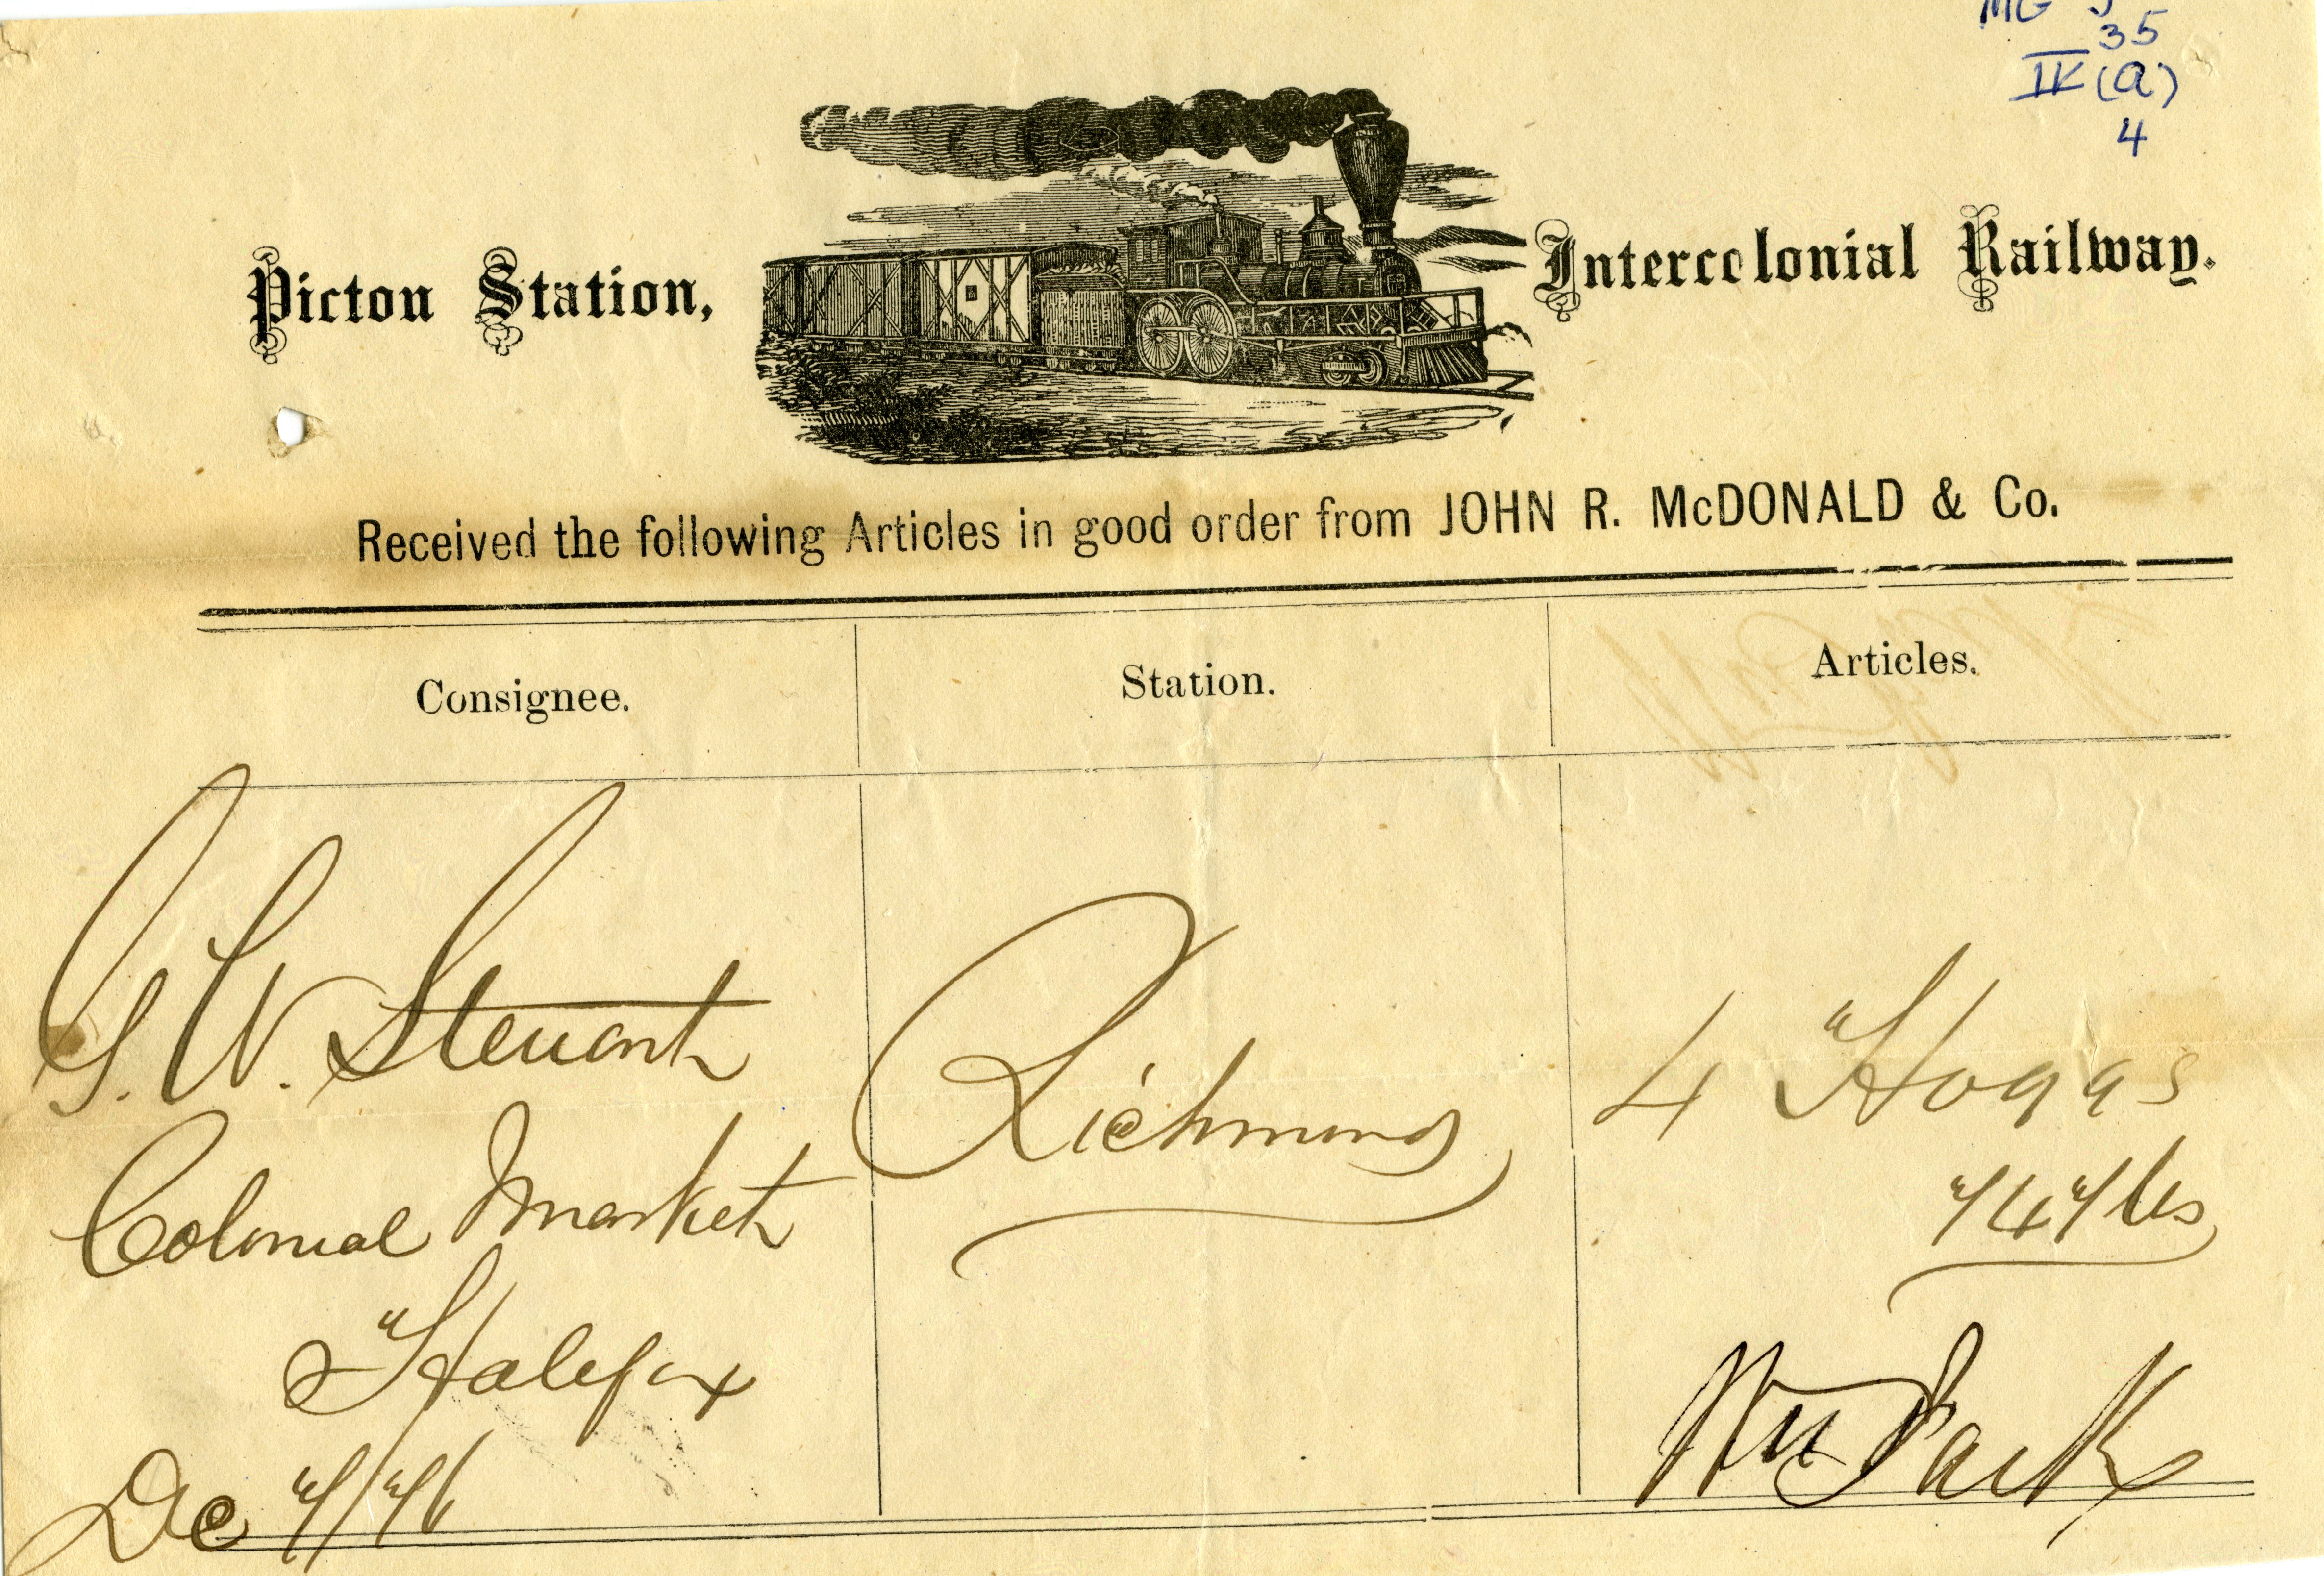 35
IV (a)
4
Picton Station, Intercolonial Railway.
Received the following Articles in good order from JOHN R. McDONALD & Co.
Consignee. Station. Articles.
G. W. Stewart Richmond 4 Hoggs
Colonial Market 747 lbs
Halifax
Dec 7/76 Wm Park